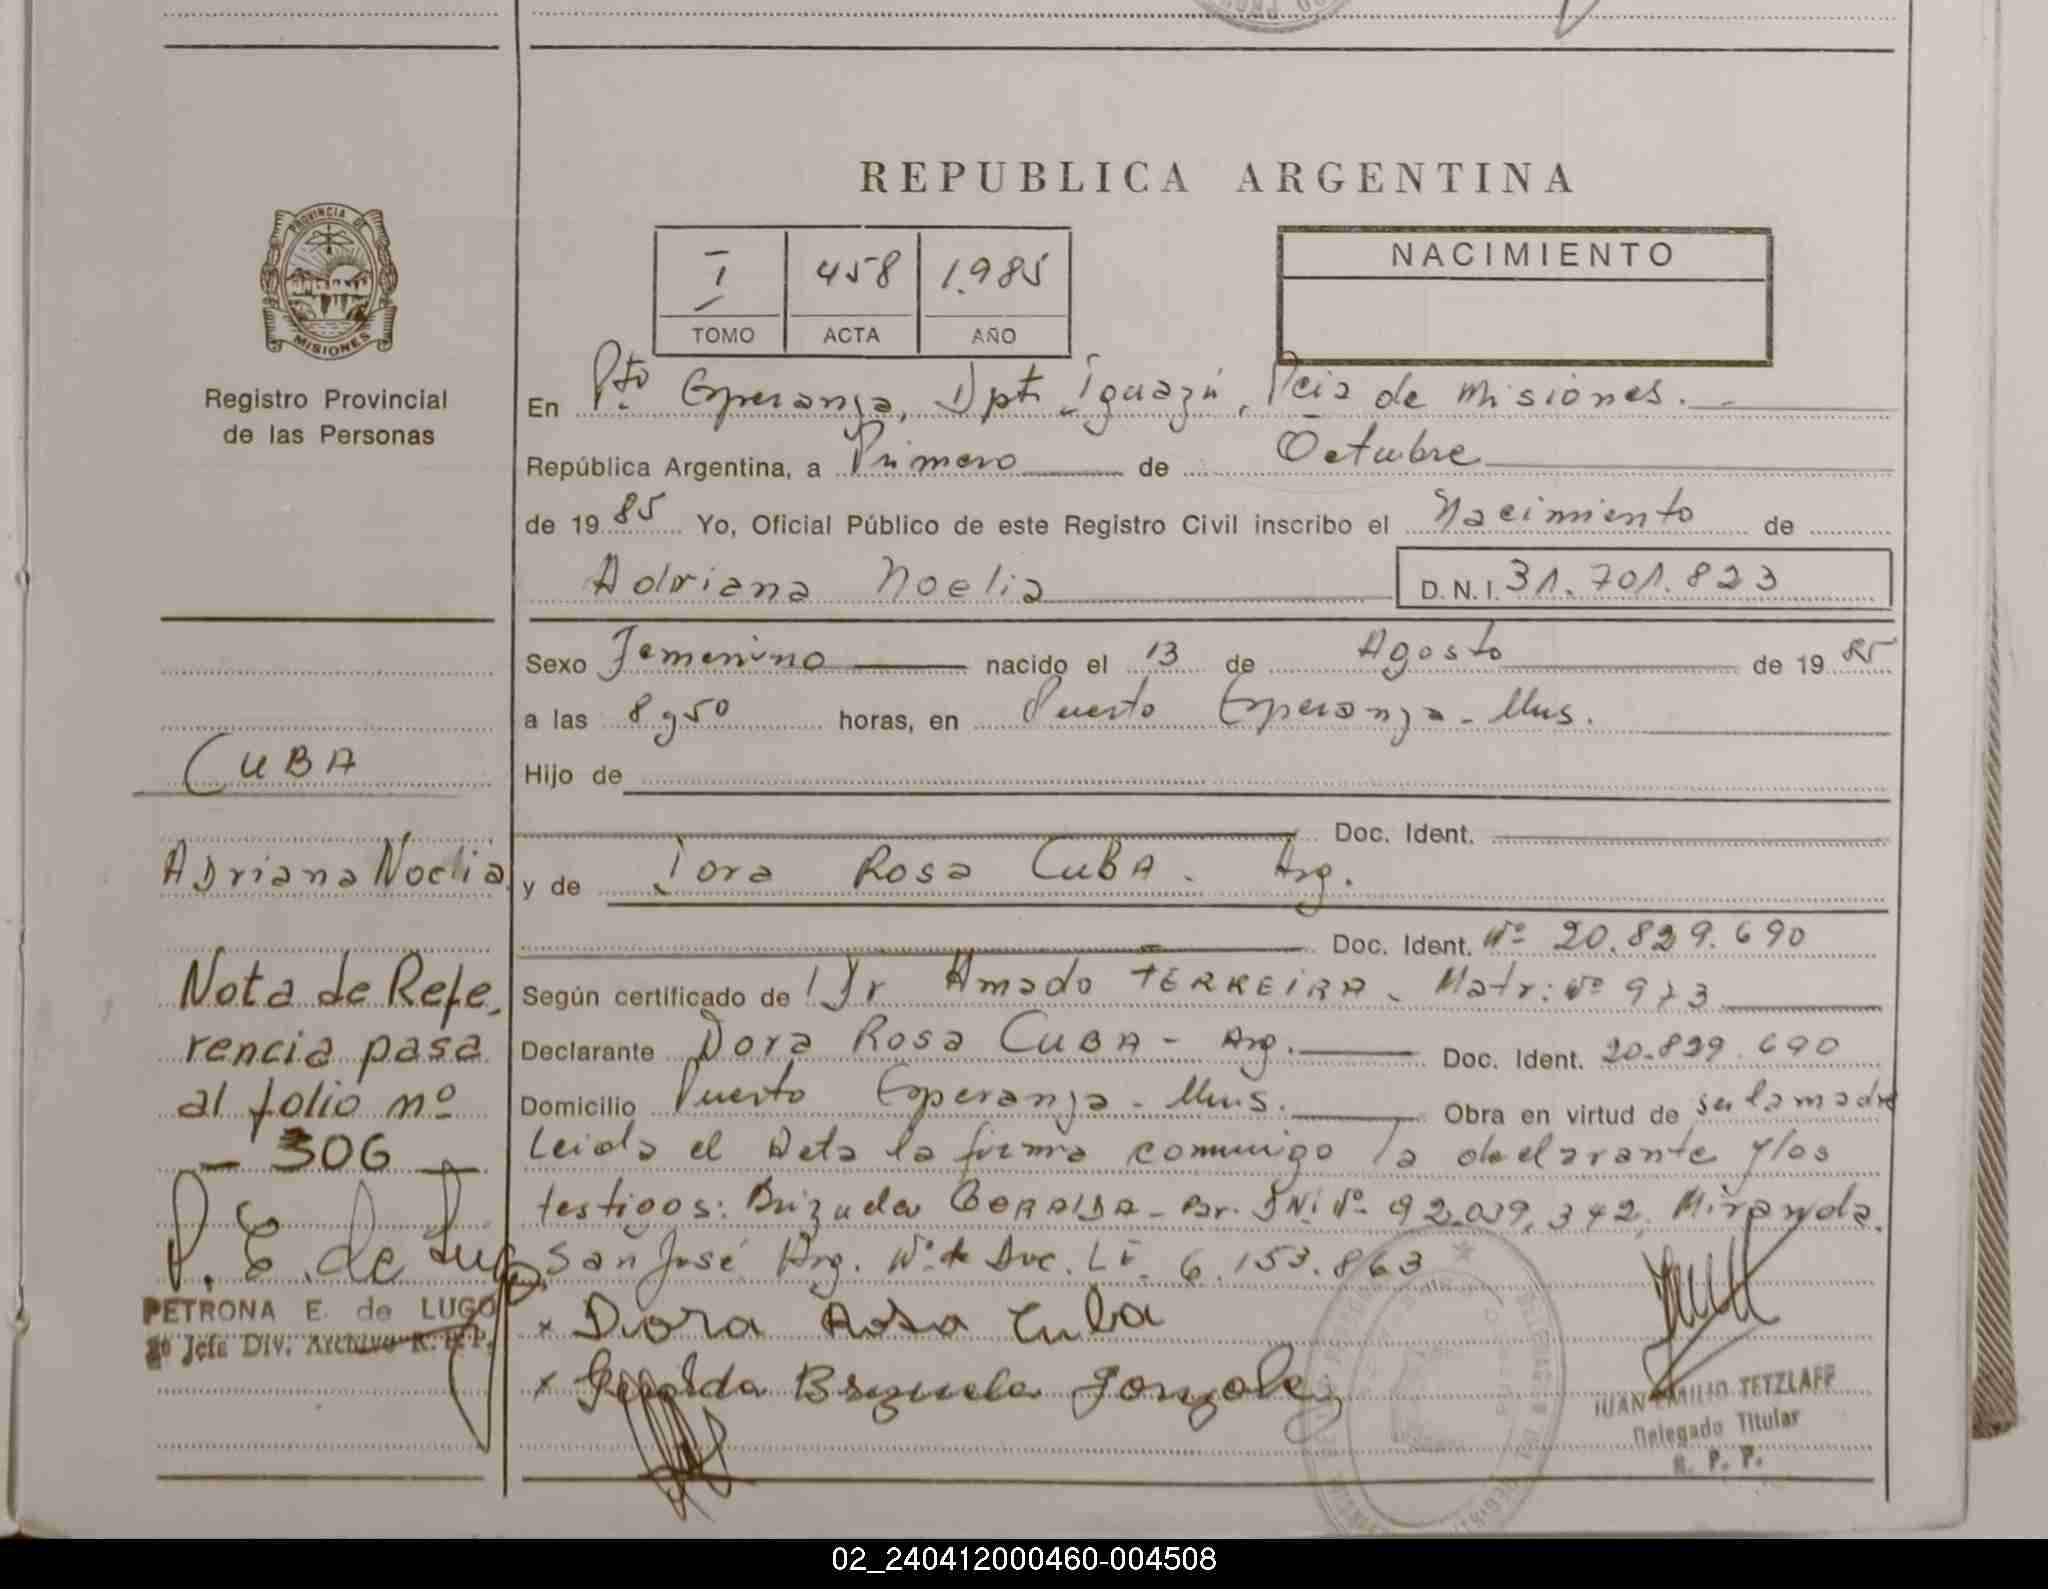 REPUBLICA ARGENTINA
PROVINCIA DE
MISIONES
Registro Provincial
de las Personas
I 458 1.985
TOMO ACTA AÑO
NACIMIENTO
En Pto Esperanza, Dpto Iguazú, Pcia de Misiones.
República Argentina, a Primero de Octubre
de 19 85 Yo, Oficial Público de este Registro Civil inscribo el Nacimiento de
Adriana Noelia D.N.I. 31.701.823
Sexo Femenino nacido el 13 de Agosto de 19 85
a las 8 y 50 horas, en Puerto Esperanza - Mnes.
Hijo de
Doc. Ident.
y de Dora Rosa CUBA - Arg.
Doc. Ident. Nº 20.829.690
Según certificado de Dr Amado FERREIRA - Matr: Nº 973
Declarante Dora Rosa CUBA - Arg. Doc. Ident. 20.829.690
Domicilio Puerto Esperanza - Mnes. Obra en virtud de ser la madre
Leida el Acta la firma conmigo la declarante y los
testigos: Brizuela GERALDA - Par. DNI Nº 92.039.342, Miranda
San José Arg. Nº de Doc. LE 6.153.863
x Dora Rosa Cuba
x Geralda Brizuela Gonzalez
JUAN EMILIO TETZLAFF
Delegado Titular
R. P. P.
CUBA
Adriana Noelia
Nota de Refe,
rencia pasa
al folio nº
- 306 -
P. E. de Lugo
PETRONA E. de LUGO
2º Jefe Div. Archivo R.P.P.
02_240412000460-004508